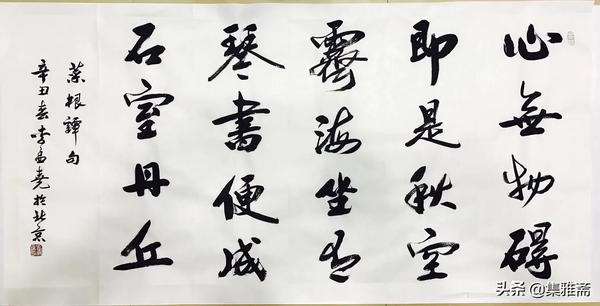 心無物碍
即是秋空
霽海坐有
琴書便成
石室丹丘
菜根譚句
辛丑春李 堯於北京
头条 @集雅斋